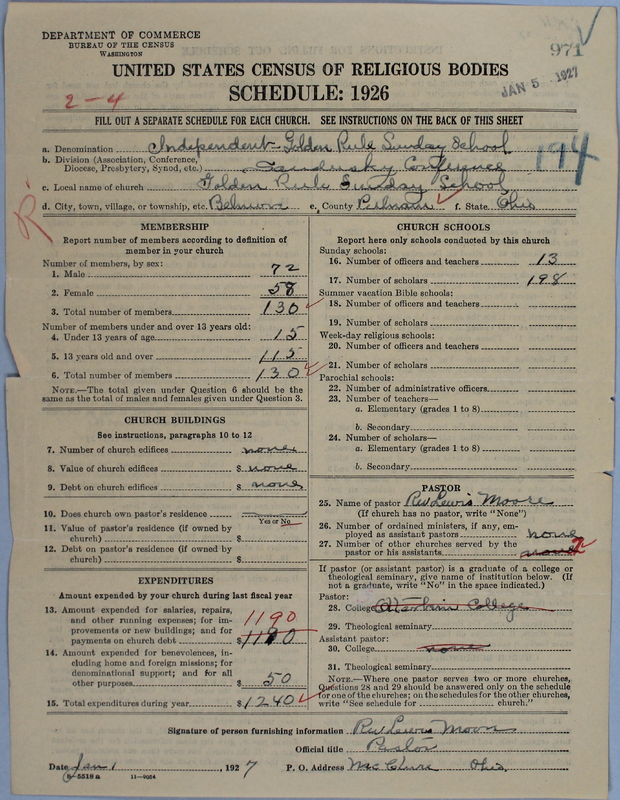 DEPARTMENT OF COMMERCE
BUREAU OF THE CENSUS
WASHINGTON
971
JAN 5 1927
UNITED STATES CENSUS OF RELIGIOUS BODIES
2-4
SCHEDULE: 1926
FILL OUT A SEPARATE SCHEDULE FOR EACH CHURCH. SEE INSTRUCTIONS ON THE BACK OF THIS SHEET
194
a. Denomination Independent-Golden Rule Sunday School
b. Division (Association, Conference,
Diocese, Presbytery, Synod, etc.) Sandusky Conference
c. Local name of church Golden Rule Sunday School
d. City, town, village, or township, etc. Belmore e. County Putnam f. State Ohio
R
MEMBERSHIP
Report number of members according to definition of
member in your church
Number of members, by sex:
1. Male 72
2. Female 58
3. Total number of members 130
Number of members under and over 13 years old:
4. Under 13 years of age 15
5. 13 years old and over 115
6. Total number of members 130
NOTE.—The total given under Question 6 should be
same as the total of males and females given under Question 3.
CHURCH BUILDINGS
See instructions, paragraphs 10 to 12
7. Number of church edifices none
8. Value of church edifices $ none
9. Debt on church edifices $ none
10. Does church own pastor's residence
Yes or No
11. Value of pastor's residence (if owned by
church) $
12. Debt on pastor's residence (if owned by
church) $
EXPENDITURES
Amount expended by your church during last fiscal year
13. Amount expended for salaries, repairs,
and other running expenses; for im-
provements or new buildings; and for
payments on church debt $ 1190
1190
14. Amount expended for benevolences, in-
cluding home and foreign missions; for
denominational support; and for all
other purposes $ 50
15. Total expenditures during year $ 1240
CHURCH SCHOOLS
Report here only schools conducted by this church
Sunday schools:
16. Number of officers and teachers 13
17. Number of scholars 198
Summer vacation Bible schools:
18. Number of officers and teachers
19. Number of scholars
Week-day religious schools:
20. Number of officers and teachers
21. Number of scholars
Parochial schools:
22. Number of administrative officers
23. Number of teachers—
a. Elementary (grades 1 to 8)
b. Secondary
24. Number of scholars—
a. Elementary (grades 1 to 8)
b. Secondary
PASTOR
25. Name of pastor Rev Lewis Moore
(If church has no pastor, write "None")
26. Number of ordained ministers, if any, em-
ployed as assistant pastors none
27. Number of other churches served by the
pastor or his assistants none 2
If pastor (or assistant pastor) is a graduate of a college or
theological seminary, give name of institution below. (If
not a graduate, write "No" in the space indicated.)
Pastor:
28. College Otterbein College
29. Theological seminary
Assistant pastor:
30. College none
31. Theological seminary
NOTE.—Where one pastor serves two or more churches,
Questions 28 and 29 should be answered only on the schedule
for one of the churches; on the schedules for the other churches,
write "See schedule for church."
Signature of person furnishing information Rev Lewis Moore
Official title Pastor
Date Jan 1, 1927 P. O. Address McClure Ohio.
8-5518 a 11-9264